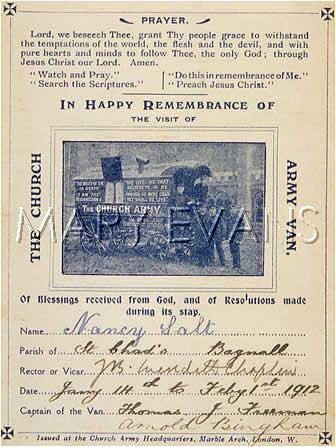 PRAYER.
Lord, we beseech Thee, grant Thy people grace to withstand
the temptations of the world, the flesh and the devil, and with
pure hearts and minds to follow Thee, the only God; through
Jesus Christ our Lord. Amen.
"Watch and Pray." "Do this in remembrance of Me."
"Search the Scriptures." "Preach Jesus Christ."
IN HAPPY REMEMBRANCE OF
THE VISIT OF
THE CHURCH
ARMY VAN.
THE CHURCH ARMY.
MARY EVANS
Of Blessings received from God, and of Resolutions made
during its stay.
Name Nancy Salt
Parish of St Chad's Bagnall
Rector or Vicar J B.
Date Jany 14th to Feby 1st 1912
Captain of the Van Thomas J. Freeman
Arnold Bingham
Issued at the Church Army Headquarters, Marble Arch, London, W.